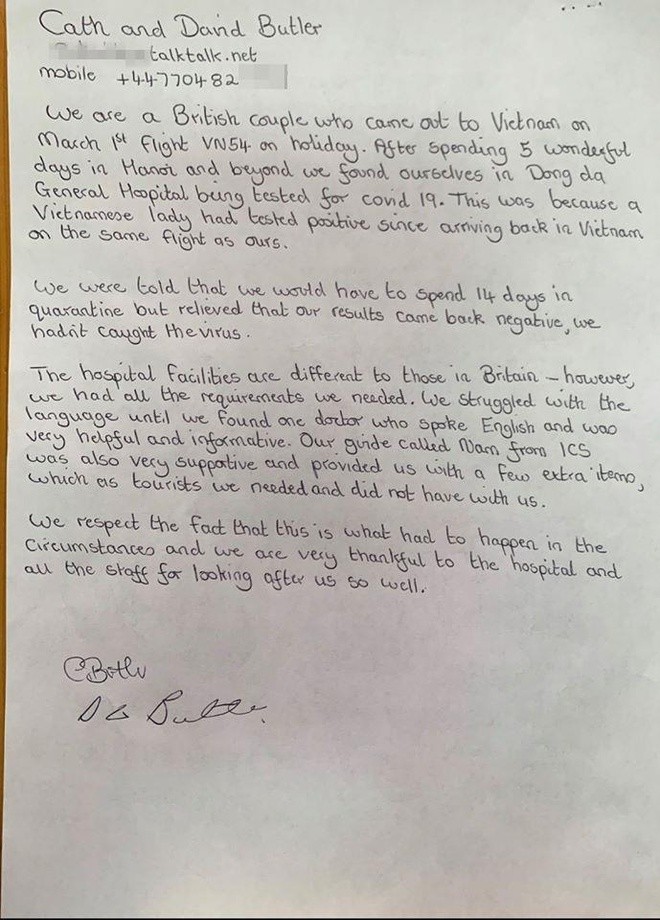 Cath and David Butler
talktalk.net
mobile +44770482
We are a British couple who came out to Vietnam on
March 1st flight VN54 on holiday. After spending 5 wonderful
days in Hanoi and beyond we found ourselves in Dong da
General Hospital being tested for covid 19. This was because a
Vietnamese lady had tested positive since arriving back in Vietnam
on the same flight as ours.
We were told that we would have to spend 14 days in
quarantine but relieved that our results came back negative, we
hadn't caught the virus.
The hospital facilities are different to those in Britain – however,
we had all the requirements we needed. We struggled with the
language until we found one doctor who spoke English and was
very helpful and informative. Our guide called Nam from ICS
was also very supportive and provided us with a few extra items,
which as tourists we needed and did not have with us.
We respect the fact that this is what had to happen in the
circumstances and we are very thankful to the hospital and
all the staff for looking after us so well.
CButler
D G Butler.